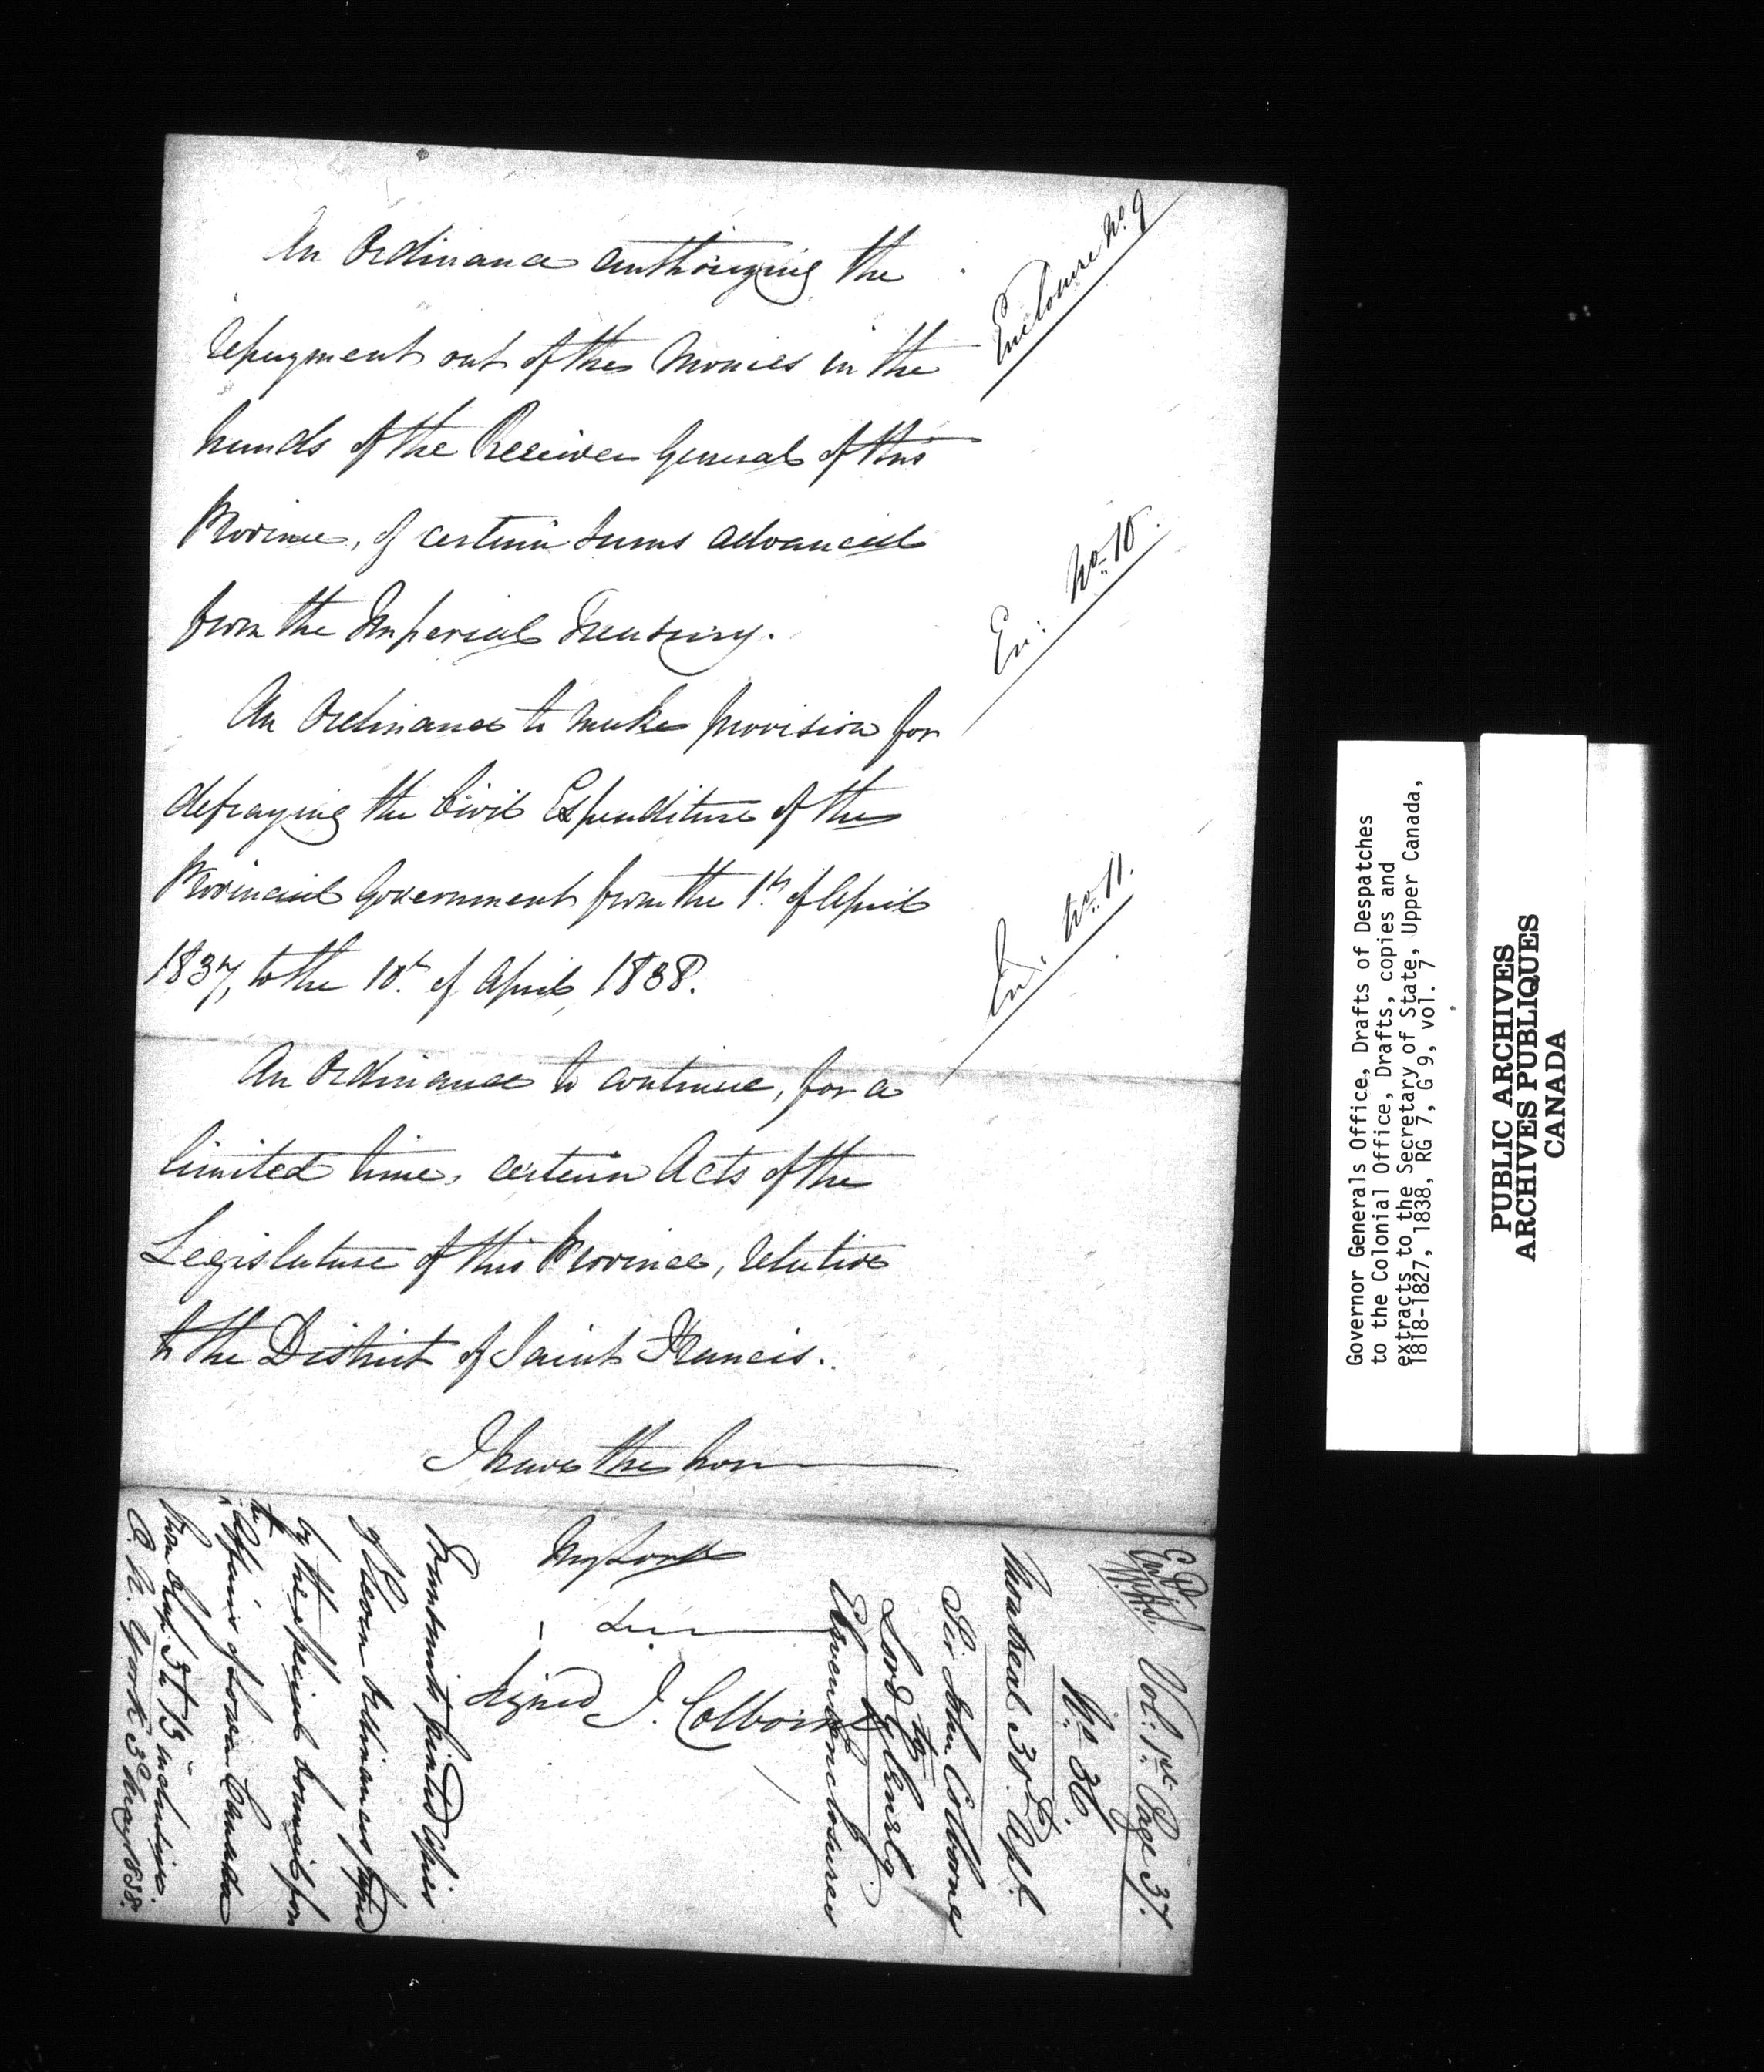 An Ordinance authorizing the
repayment out of the Monies in the
hands of the Receiver General of this
Province, of certain sums advanced
from the Imperial Treasury.
An Ordinance to make provision for
defraying the Civil Expenditure of the
Provincial Government from the 1st of April
1837, to the 10th of April, 1838.
An Ordinance to continue, for a
limited time, certain Acts of the
Legislature of this Province, relative
to the District of Saint Francis.
I have the hon
My Lord
Signed J. Colborne
Enclosure No. 9
En: No. 10.
En: No. 11.
Vol: 1st Page 37.
No. 36
Montreal 30 Apl.
Sir John Colborne
to
Lord Glenelg
Eleven Enclosures
Transmits printed Copies
of Eleven Ordinances passed
by the special Council for
the Affairs of Lower Canada
from Chap. 3 to 13 inclusive.
N. York 5 May 1838.
Governor Generals Office, Drafts of Despatches
to the Colonial Office, Drafts, copies and
extracts to the Secretary of State, Upper Canada,
1818-1827, 1838, RG 7, G 9, vol. 7
PUBLIC ARCHIVES
ARCHIVES PUBLIQUES
CANADA